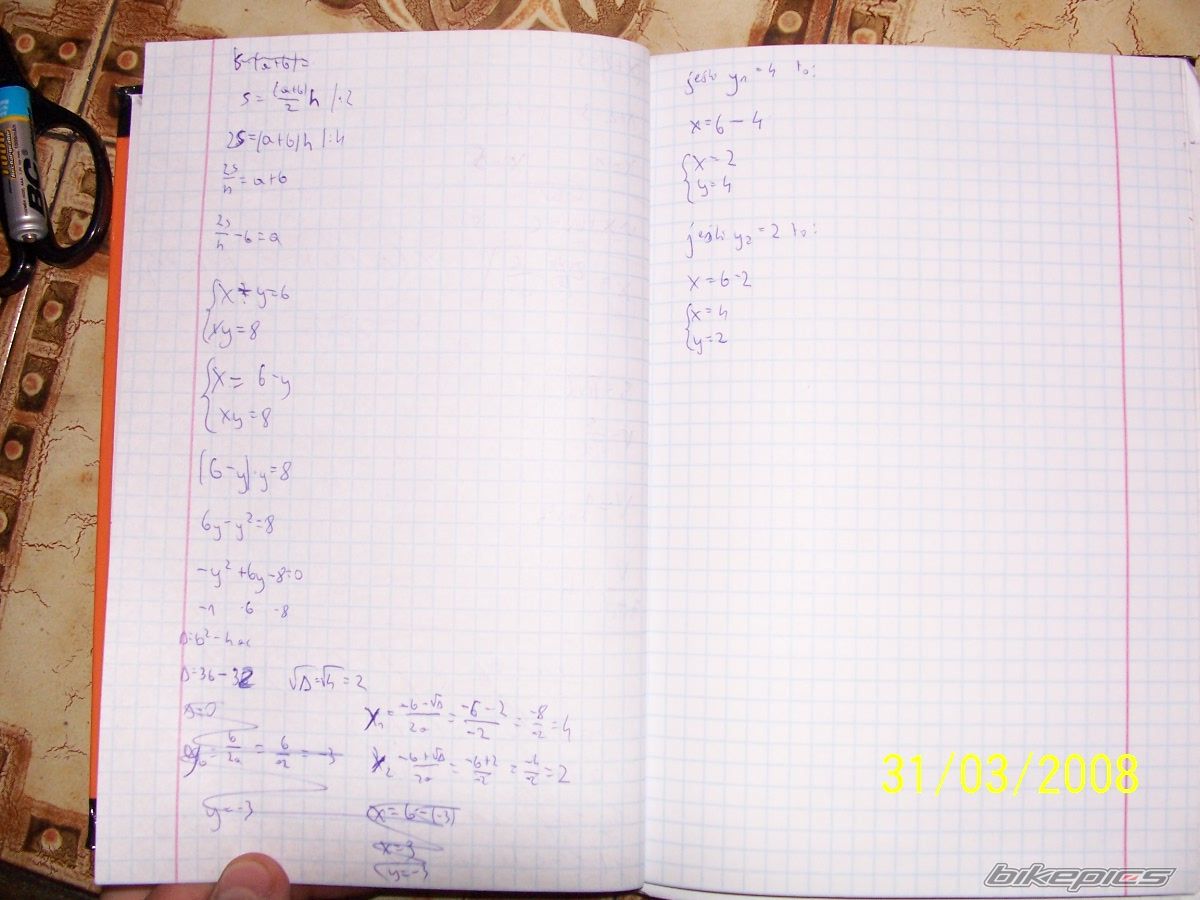 S = (a+b)/2 h /·2
2S=(a+b)h /:h
2S/h = a+b
2S/h - b = a
{ x + y = 6
{ xy = 8
{ x = 6-y
{ xy = 8
(6-y)·y=8
6y-y²=8
-y²+6y-8=0
-1 6 -8
Δ=b²-4ac
Δ=36-32 √Δ=√4=2
Δ=0
x₁ = -b-√Δ/2a = -6-2/-2 = -8/-2 = 4
y₀ = b/2a = 6/-2 = -3
x₂ = -b+√Δ/2a = -6+2/-2 = -4/-2 = 2
y=-3
x=6-(-3)
x=3
y=-3
jeśli y₁=4 to:
x=6-4
{ x=2
{ y=4
jeśli y₂=2 to:
x=6-2
{ x=4
{ y=2
BC
31/03/2008
bikepics